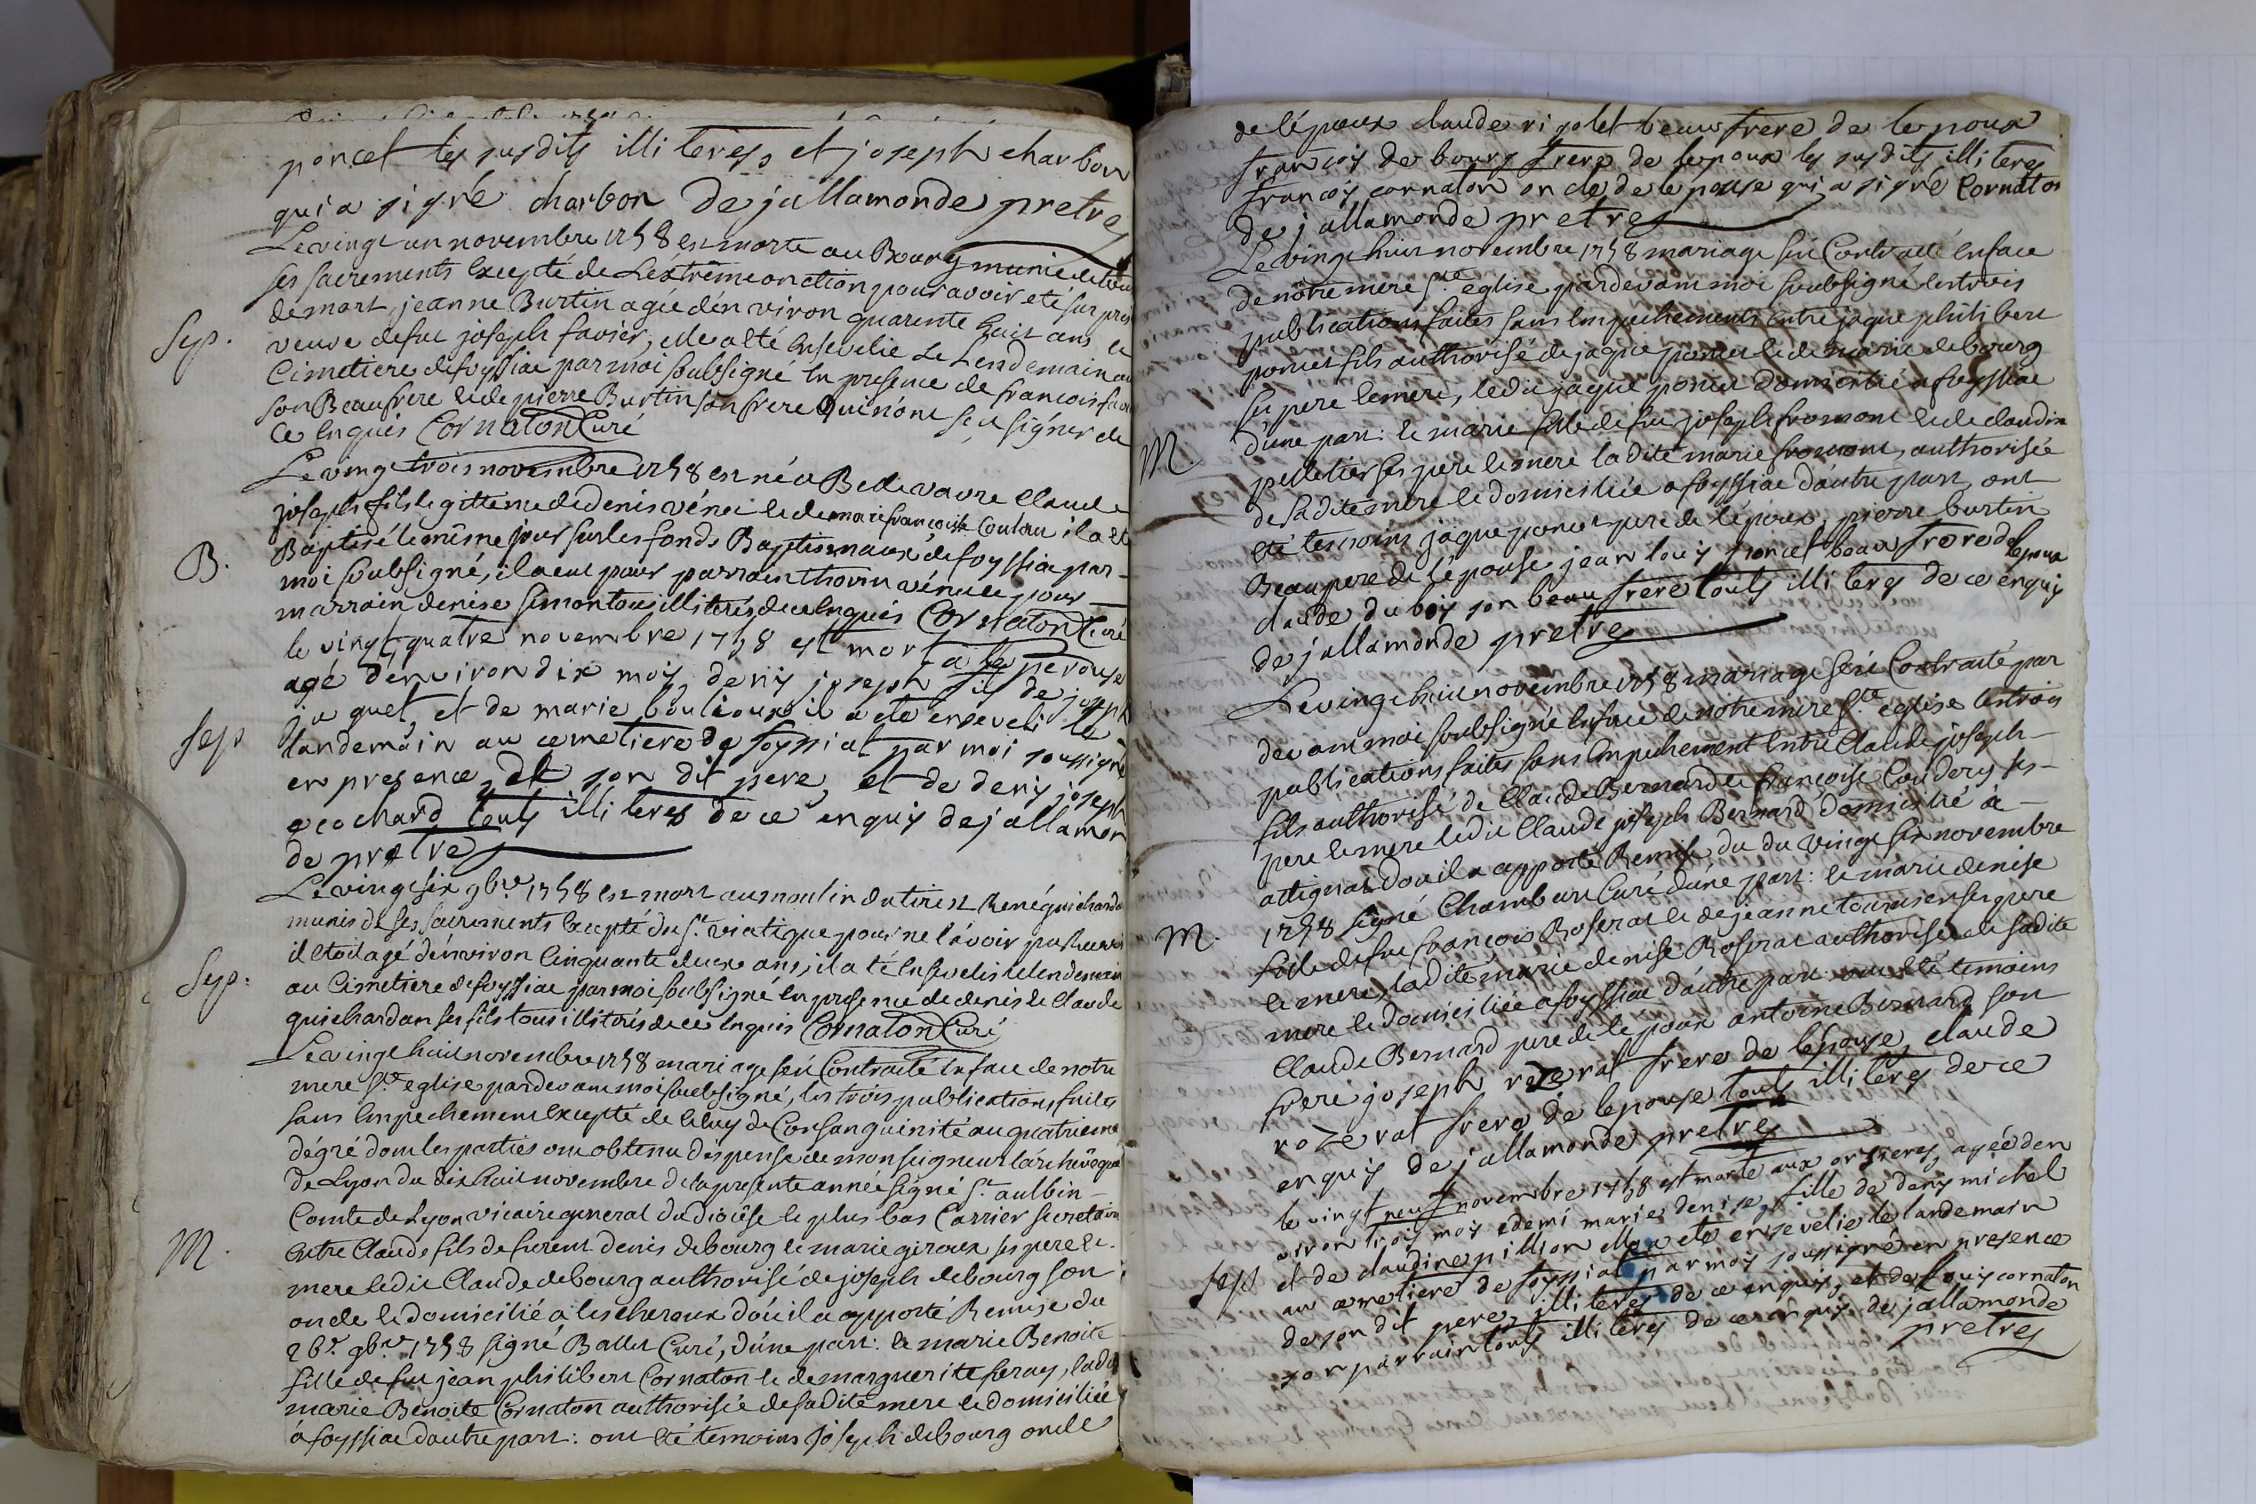 poncet les susdits illiteres et joseph charbon
qui a signé charbon De jallamonde pretre
Le vingt un novembre 1758 est morte au Bourg munie de tous
ses sacrements Excepté de L'extrême onction pour avoir eté surprise
de mort, jeanne Burtin agée d'en viron quarente huit ans et
Sep.
veuve de feu joseph favier, elle a eté Ensevelie Le Lendemain au
Cimetiere de foyssiac par moi soubsigné En presence de francois favier
son Beaufrere et de pierre Burtin son frere Qui n'ont seu signer de
ce Enquis Cornaton Curé
Le vingt trois novembre 1758 est né a Bellevavre Claude
joseph fils legittime de denis vénet et de marie francoise Coulon il a eté
B.
Baptisé le même jour sur les fonds Baptismaux de foyssiac par
moi soubsigné, il a eut pour parrain thomas vénet et pour
marraine denise simon tous illiterés de ce Enquis Cornaton Curé
le vingt quatre novembre 1758 est mort a la perouse
agé d'environ dix mois denis joseph fils de joseph
Sep
jaquet, et de marie boulioux il a eté enseveli le
landemain au cemetiere de foyssiat par moi soussigné
en presence de son dit pere, et de denis joseph
cochard touts illiteres de ce enquis de jallamon
de pretre
Le vingt six 9bre 1758 est mort au moulin du tiret René guichardan
munis de ses sacrements Excepté du St. viatique pour ne l'avoir pu recevoir
il etoit agé d'environ Cinquante deux ans, il a eté Ensevelis le lendemain
Sep:
au Cimetiere de foyssiac par moi soubsigné En presence de denis et Claude
guichardan ses fils tous illiterés de ce Enquis Cornaton Curé
Le vingt huit novembre 1758 mariage feu Contracté En face de notre
mere Ste eglise pardevant moi soubsigné, les trois publications faites
sans Empechement Excepté de Celuy de Consanguinité au quatrieme
dégré dont les parties ont obtenu dispense de monseigneur l'archevêque
De Lyon du dix huit novembre de la presente année signé St. aulbin
Comte de Lyon vicaire general du diocêse et plus bas Carrier secretaire
M.
Entre Claude fils de furent denis debourg et marie giroux ses pere et
mere Ledit Claude debourg authorisé de joseph debourg son
oncle et domicilié a lescheroux d'où il a apporté Remise du
26e. 9bre 1758 signé Ballet Curé, d'une part: et marie Benoite
fille de feu jean philibert Cornaton et de marguerite feray, ladite
marie Benoite Cornaton authorisée de sadite mere et domiciliée
a foyssiac d'autre part: ont été témoins joseph debourg oncle
de l'epoux claude rigolet beau frere de lepoux
francois de bourg frere de lepoux les susdits illiteres
francois cornaton oncle de lepouse qui a signé Cornaton
de jallamonde pretre
Le vingt huit novembre 1758 mariage feu Contracté En face
de nôtre mere Ste église pardevant moi soubsigné les trois
publications faites sans Empechements entre jaque philibert
poncet fils authorisé de jaque poncet et de marie debourg
ses pere et mere, ledit jaque poncet domicilié a foyssiac
M
d'une part: et marie fille de feu joseph fromont et de claudine
pelletier ses pere et mere ladite marie fromont, authorisée
de sadite mere et domiciliée a foyssiac d'autre part, ont
eté temoins jaque poncet pere de l'epoux, pierre burtin
Beau pere de l'épouse jean louis poncet beau frere de lepoux
claude du bois son beau frere touts illiteres de ce enquis
de jallamonde pretre
Le vingt huit novembre 1758 mariage feu Contracté par
devant moi soubsigné En face de notre mere Ste eglise les trois
publications faites sans Empechement Entre Claude joseph
fils authorisé de Claude Bernard et francoise Coudery ses
pere et mere ledit Claude joseph Bernard domicilié a
attignat d'ou il a apporté Remise du du vingt six novembre
M.
1758 signé Chambard Curé d'une part: et marie denise
fille de feu francois Roserat et de jeanne ses pere
et mere, ladite marie denise Roserat authorisée de sadite
mere et domiciliée a foyssiac d'autre part: ont eté temoins
Claude Bernard pere de l'epoux antoine Bernard son
frere joseph rozerat frere de lepouse, claude
rozerat frere de lepouse touts illiteres de ce
enquis de jallamonde pretre
le vingt neuf novembre 1758 est morte aux orsieres, agée den
viron trois mois edemi marie denise, fille de denis michel
Sep
et de claudine pillion elle a eté ensevelie le landemain
au cemetiere de foyssiat par mois soussigné en presence
de son dit pere, illiteres de ce enquis, et de louis cornaton
son parrain touts illiteres de ce enquis de jallamonde
pretre